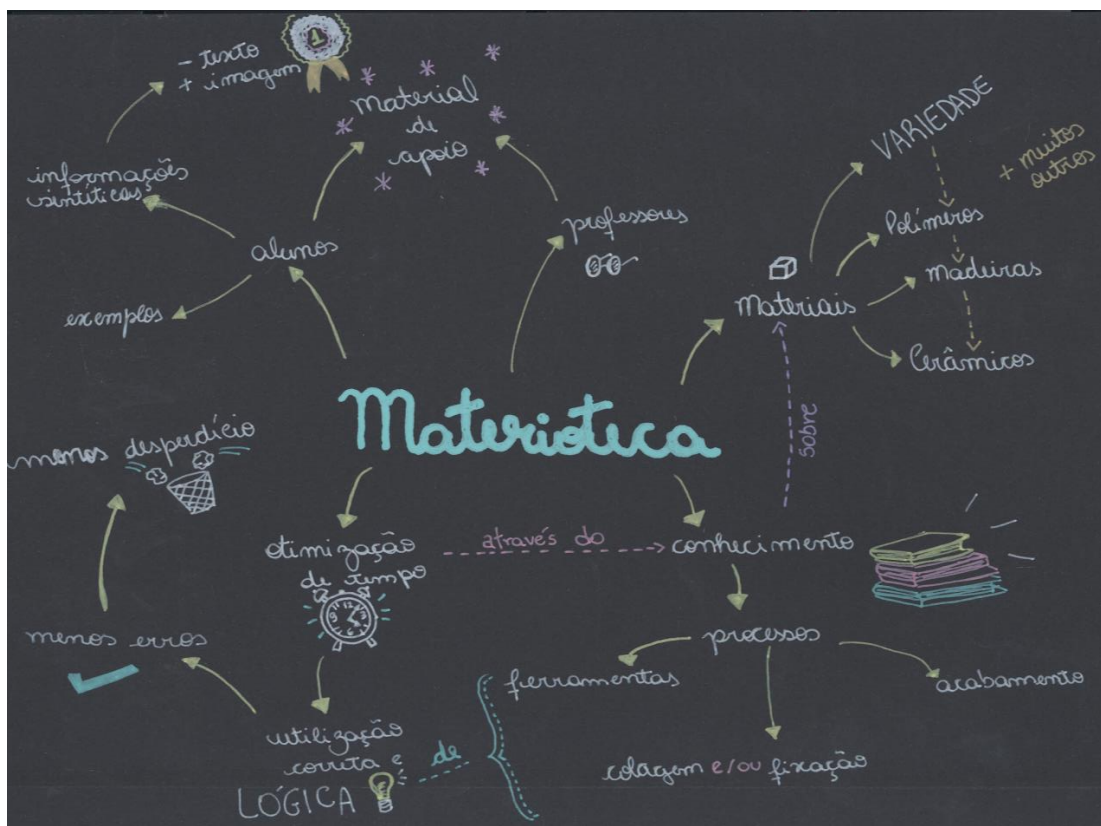 - texto
+ imagem
1
Material
de
apoio
informações
sintéticas
alunos
exemplos
professores
VARIEDADE
+ muitos
outros
Polímeros
madeiras
Cerâmicos
Materiais
Materioteca
sobre
menos desperdício
otimização
de tempo
através do
conhecimento
menos erros
processos
ferramentas
acabamento
colagem e/ou fixação
utilização
correta e
LÓGICA
de